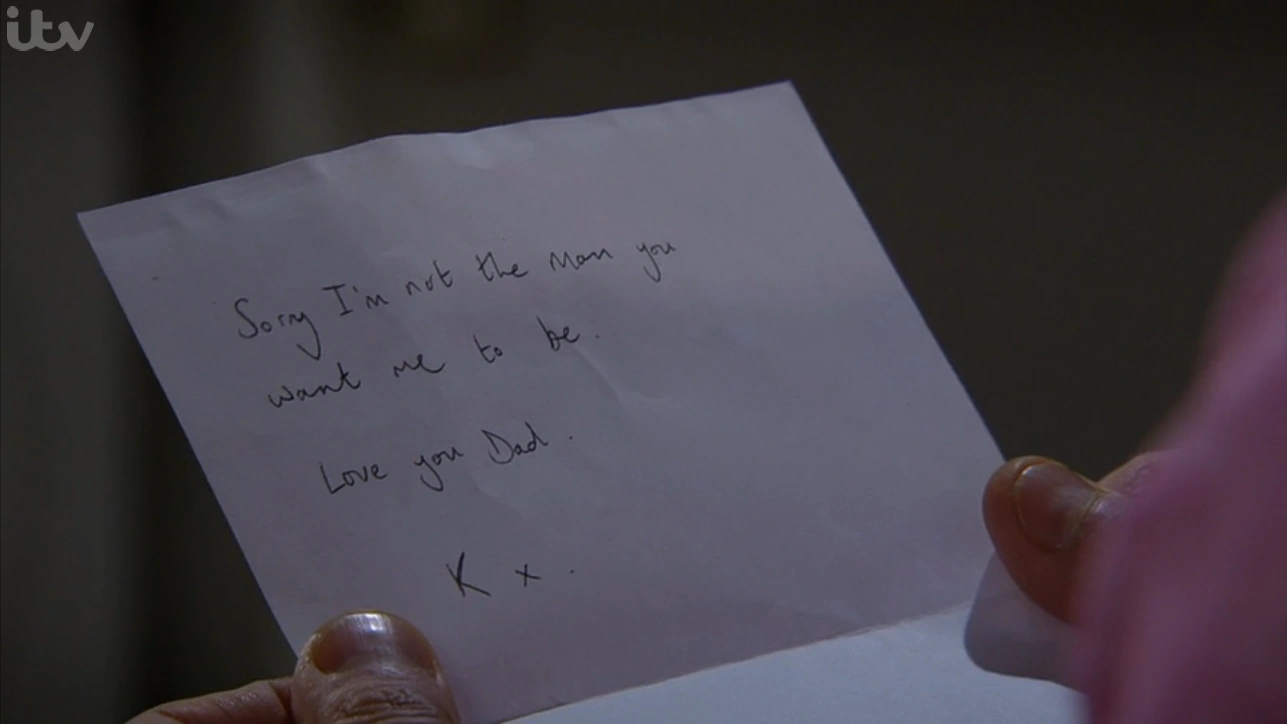 itv
Sorry I'm not the man you
want me to be.
Love you Dad.
K x.